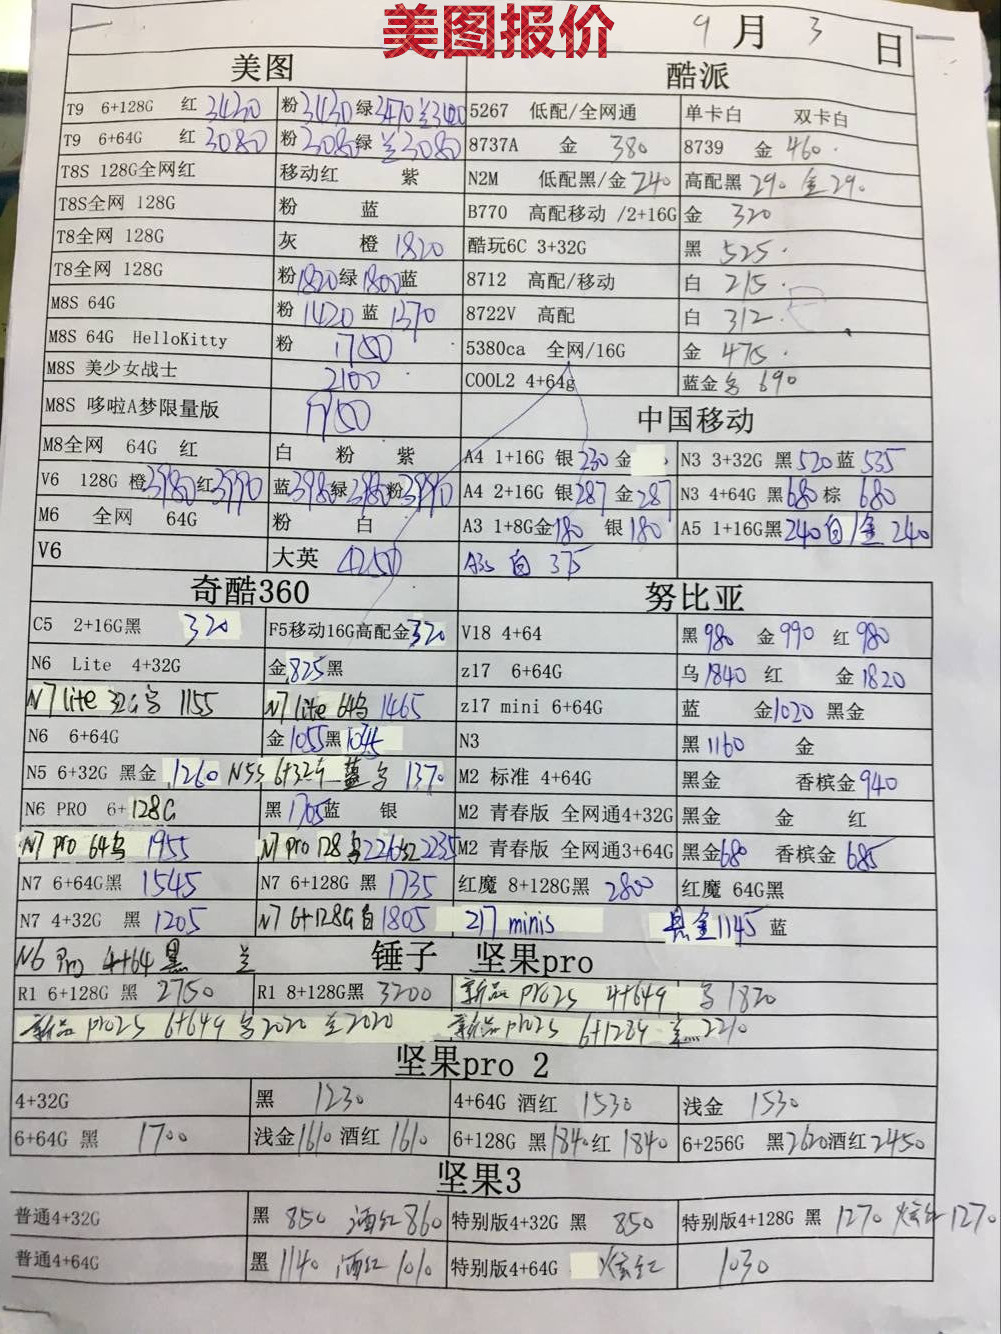 美图报价
9 月 3 日
美图 酷派
T9 6+128G 红 3430 粉 3430 绿 3470 兰 3400 5267 低配/全网通 单卡白 双卡白
T9 6+64G 红 3080 粉 3080 绿 兰 3080 8737A 金 380 8739 金 460
T8S 128G全网红 移动红 紫 N2M 低配黑/金 240 高配黑 290 金 290
T8S全网 128G 粉 蓝 B770 高配移动 /2+16G 金 320
T8全网 128G 灰 橙 1820 酷玩6C 3+32G 黑 525
T8全网 128G 粉 1820 绿 1800 蓝 8712 高配/移动 白 215
M8S 64G 粉 1420 蓝 1370 8722V 高配 白 312
M8S 64G HelloKitty 粉 1750 5380ca 全网/16G 金 475
M8S 美少女战士 2100 COOL2 4+64g 蓝金 690
M8S 哆啦A梦限量版 1750 中国移动
M8全网 64G 红 白 粉 紫 A4 1+16G 银 230 金 N3 3+32G 黑 520 蓝 535
V6 128G 橙 3980 红 3990 蓝 3980 绿 粉 3990 A4 2+16G 银 287 金 287 N3 4+64G 黑 680 棕 680
M6 全网 64G 粉 白 A3 1+8G金 180 银 180 A5 1+16G黑 240 白/金 240
V6 大英 4250 A3s 白 375
奇酷360 努比亚
C5 2+16G黑 320 F5移动16G高配金 320 V18 4+64 黑 980 金 990 红 980
N6 Lite 4+32G 金 825 黑 z17 6+64G 乌 1840 红 金 1820
N7 lite 32G 乌 1155 N7 lite 64乌 1465 z17 mini 6+64G 蓝 金 1020 黑金
N6 6+64G 金 1055 黑 1045 N3 黑 1160 金
N5 6+32G 黑金 1260 N5S 6+32 蓝 乌 1370 M2 标准 4+64G 黑金 香槟金 940
N6 PRO 6+128G 黑 1705 蓝 银 M2 青春版 全网通4+32G 黑金 金 红
N7 pro 64乌 1955 N7 pro 128 乌 226 红 2235 M2 青春版 全网通3+64G 黑金 680 香槟金 685
N7 6+64G黑 1545 N7 6+128G 黑 1735 红魔 8+128G黑 2800 红魔 64G黑
N7 4+32G 黑 1205 N7 6+128G 白 1805 Z17 minis 黑金 1145 蓝
N6 Pro 4+64 黑 兰 锤子 坚果pro
R1 6+128G 黑 2750 R1 8+128G黑 3200 新品 pro2S 4+64G 乌 1820
新品 pro2S 6+64G 乌 2020 兰 2020 新品 pro2S 6+128G 2210
坚果pro 2
4+32G 黑 1230 4+64G 酒红 1530 浅金 1530
6+64G 黑 1700 浅金 1610 酒红 1610 6+128G 黑 1840 红 1840 6+256G 黑 2620 酒红 2450
坚果3
普通4+32G 黑 850 酒红 860 特别版4+32G 黑 850 特别版4+128G 黑 1270 炫红 1270
普通4+64G 黑 1140 酒红 1010 特别版4+64G 炫红 1030